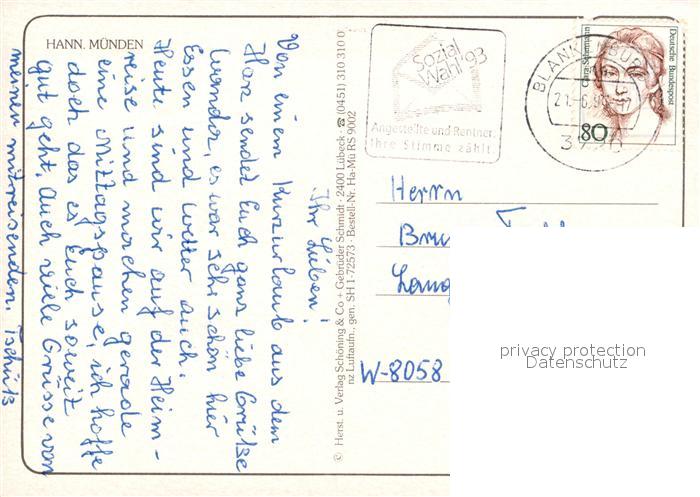 HANN. MÜNDEN
Ihr Lieben!
Von einem Kurzurlaub aus dem
Harz sendet Euch ganz liebe Grüße
Wanda, es war sehr schön hier
Essen und Wetter auch.
Heute sind wir auf der Heim-
reise und machen gerade
eine Mittagspause, ich hoffe
doch das es Euch soweit
gut geht. Auch viele Grüsse von
meinen mitreisenden. Tschüß
© Herst. u. Verlag Schöning & Co + Gebrüder Schmidt · 2400 Lübeck · ☎ (0451) 310 310
nz Luftaufn., gen. SH 1-72573 · Bestell-Nr. Ha-Mü RS 9002
Sozial
Wahl '93
Angestellte und Rentner.
Ihre Stimme zählt.
Clara Schumann
Deutsche Bundespost
80
Herrn
W-8058
privacy protection
Datenschutz